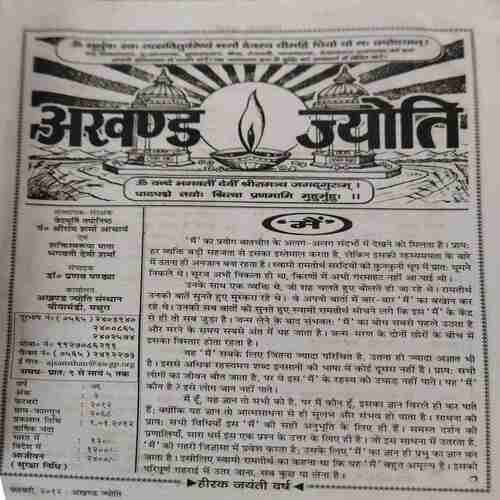 ॐ भूर्भुवः स्वः तत्सवितुर्वरेण्यं भर्गो देवस्य धीमहि धियो यो नः प्रचोदयात्।
अखण्ड ज्योति
ॐ वन्दे भगवतीं देवीं श्रीरामञ्च जगद्गुरुम्।
पादपद्मे तयोः श्रित्वा प्रणमामि मुहुर्मुहुः।।
संस्थापक-संरक्षक
वेदमूर्ति तपोनिष्ठ
पं० श्रीराम शर्मा आचार्य
एवं
शक्तिस्वरूपा माता
भगवती देवी शर्मा
संपादक
डॉ० प्रणव पण्ड्या
कार्यालय
अखण्ड ज्योति संस्थान
घीयामंडी, मथुरा
दूरभाष नं० (०५६५)
फैक्स नं० (०५६५)
समय-प्रातः ९ से सायं ५ तक
वर्ष
अंक
फरवरी : २०१२
वार्षिक चंदा
भारत में
विदेश में
आजीवन
(सुरक्षा निधि)
'मैं'
'मैं' का प्रयोग बातचीत के अलग-अलग संदर्भों में देखने को मिलता है। प्रायः
हर व्यक्ति बड़ी सहजता से इसका इस्तेमाल करता है, लेकिन इसकी रहस्यमयता के बारे
में उतना ही अनजान बना रहता है। स्वामी रामतीर्थ सरदियों की गुनगुनी धूप में प्रातः घूमने
निकले थे। सूरज अभी निकला ही था, किरणों में अभी गरमाहट नहीं आ पाई थी।
उनके साथ एक व्यक्ति थे, जो राह चलते हुए बोलते ही जा रहे थे। रामतीर्थ
उनकी बातें सुनते हुए मुस्करा रहे थे। वे अपनी बातों में बार-बार 'मैं' का बखान कर
रहे थे। उनकी सब बातों को सुनते हुए स्वामी रामतीर्थ सोचने लगे कि इस 'मैं' के केंद्र
से ही तो सब जुड़ा है। जन्म लेने के बाद संभवतः 'मैं' का बोध सबसे पहले उठता है
और मरने के समय सबसे अंत में यह जाता है। जन्म-मरण के दोनों छोरों के बीच में
इसका विस्तार होता रहता है।
यह 'मैं' सबके लिए जितना ज्यादा परिचित है, उतना ही ज्यादा अज्ञात भी
है। इससे अधिक रहस्यमय शब्द इनसानी की भाषा में कोई दूसरा नहीं है। प्रायः सभी
लोगों का जीवन बीत जाता है, पर वे इस 'मैं' के रहस्य को उघाड़ नहीं पाते। यह 'मैं'
कौन है? इसे लोग जान नहीं पाते।
मैं हूँ, यह ज्ञान तो सभी को है, पर मैं कौन हूँ, इसका ज्ञान विरले ही कर पाते
हैं; क्योंकि यह ज्ञान तो आत्मसाधना से ही सुलभ और संभव हो पाता है। साधना की
प्रायः सभी विधियाँ इस 'मैं' की सही अनुभूति के लिए ही हैं। समस्त दर्शन की
प्रणालियाँ, सारा धर्म इस एक प्रश्न के उत्तर के लिए ही है। जो इस साधना में उतरता है,
'मैं' की गहरी जिज्ञासा में प्रवेश करता है; उसके लिए 'मैं' का ज्ञान ही प्रभु का ज्ञान बन
जाता है। इसीलिए स्वामी रामतीर्थ का कहना था कि यह 'मैं' बहुत अमूल्य है। इसकी
परिपूर्ण गहराई में उतर जाना, सब कुछ पा लेना है।
हीरक जयंती वर्ष
फरवरी, २०१२ : अखण्ड ज्योति